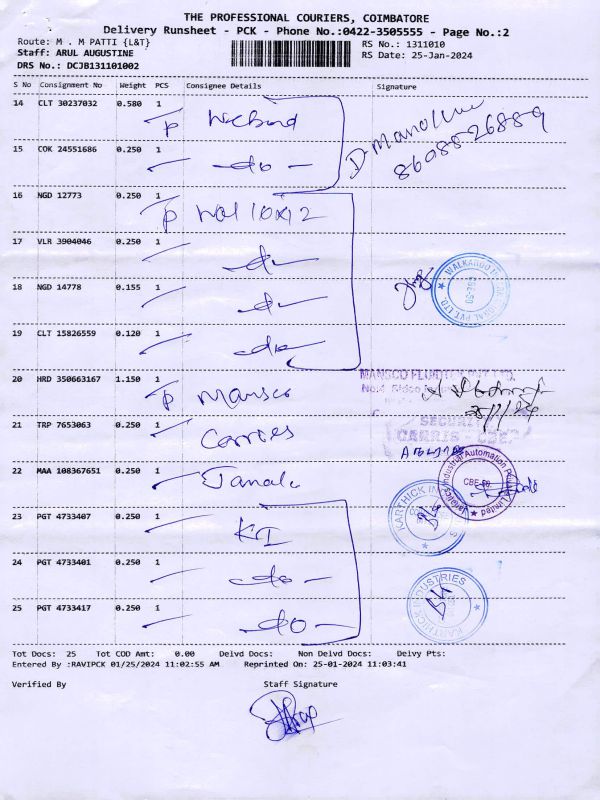 THE PROFESSIONAL COURIERS, COIMBATORE
Delivery Runsheet - PCK - Phone No.:0422-3505555 - Page No.:2
Route: M . M PATTI {L&T}
Staff: ARUL AUGUSTINE
DRS No.: DCJB131101002
RS No.: 1311010
RS Date: 25-Jan-2024
S No Consignment No Weight PCS Consignee Details Signature
14 CLT 30237032 0.580 1
D. Manoj
15 COK 24551686 0.250 1 - do -
16 NGD 12773 0.250 1
17 VLR 3904046 0.250 1
18 NGD 14778 0.155 1
WALKAROO
PVT. LTD.
CBE-50
19 CLT 15826559 0.120 1
20 HRD 350663167 1.150 1
P Mansco
MANSCO PVT LTD.
21 TRP 7653063 0.250 1
Carries
SECURITY
CARRIS CBE
22 MAA 108367651 0.250 1
Industrial Automation Private Limited
CBE-50.
23 PGT 4733407 0.250 1
KI
KARTHICK
24 PGT 4733401 0.250 1 - do -
25 PGT 4733417 0.250 1 - do -
KARTHICK INDUSTRIES
Tot Docs: 25 Tot COD Amt: 0.00 Delvd Docs: Non Delvd Docs: Delvy Pts:
Entered By :RAVIPCK 01/25/2024 11:02:55 AM Reprinted On: 25-01-2024 11:03:41
Verified By Staff Signature